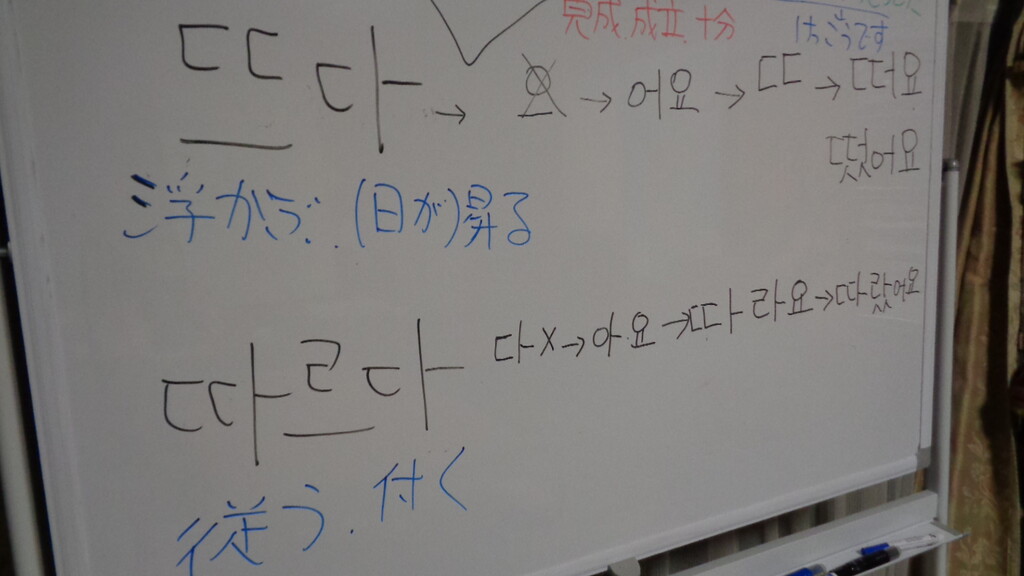 完成.成立.十分
けっこうです
뜨다 → → 어요 → ㄸ → 떠요
떴어요
浮かぶ.(日が)昇る
따르다 다x→아요→따라요→따랐어요
従う.付く